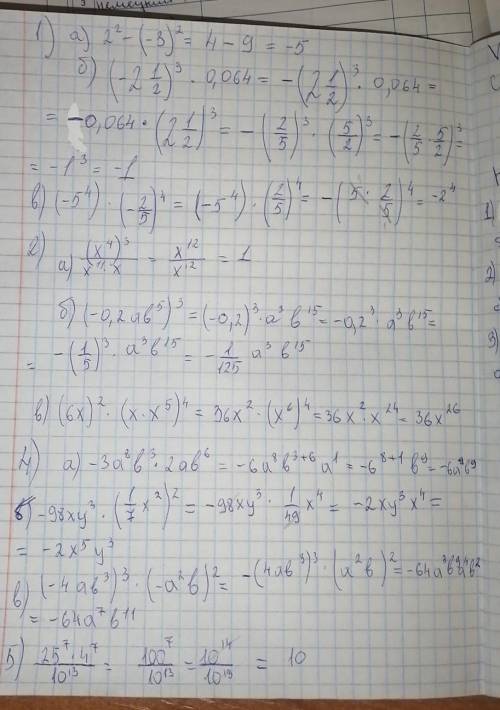 1) а) 2² - (-3)² = 4 - 9 = -5
б) (-2 1/2)³ · 0,064 = -(2 1/2)³ · 0,064 =
= -0,064 · (2 1/2)³ = -(2/5)³ · (5/2)³ = -(2/5 · 5/2)³ =
= -1³ = -1
в) (-5⁴) · (-2/5)⁴ = (-5⁴) · (2/5)⁴ = -(5 · 2/5)⁴ = -2⁴
2)
а) (x⁴)³/x¹¹·x = x¹²/x¹² = 1
б) (-0,2ab⁵)³ = (-0,2)³ · a³b¹⁵ = -0,2³ · a³b¹⁵ =
= -(1/5)³ · a³b¹⁵ = -1/125 a³b¹⁵
в) (6x)² · (x · x⁵)⁴ = 36x² · (x⁶)⁴ = 36x² · x²⁴ = 36x²⁶
4) а) -3a⁸b³ · 2ab⁶ = -6a⁸b³⁺⁶a¹ = -6⁸⁺¹b⁹ = -6a⁹b⁹
б) -98xy³ · (1/7 x²)² = -98xy³ · 1/49 x⁴ = -2xy³x⁴ =
= -2x⁵y³
в) (-4ab³)³ · (-a²b)² = -(4ab³)³ · (a²b)² = -64a³b⁹a⁴b²
= -64a⁷b¹¹
5) 25⁷·4⁷/10¹³ = 100⁷/10¹³ = 10¹⁴/10¹³ = 10